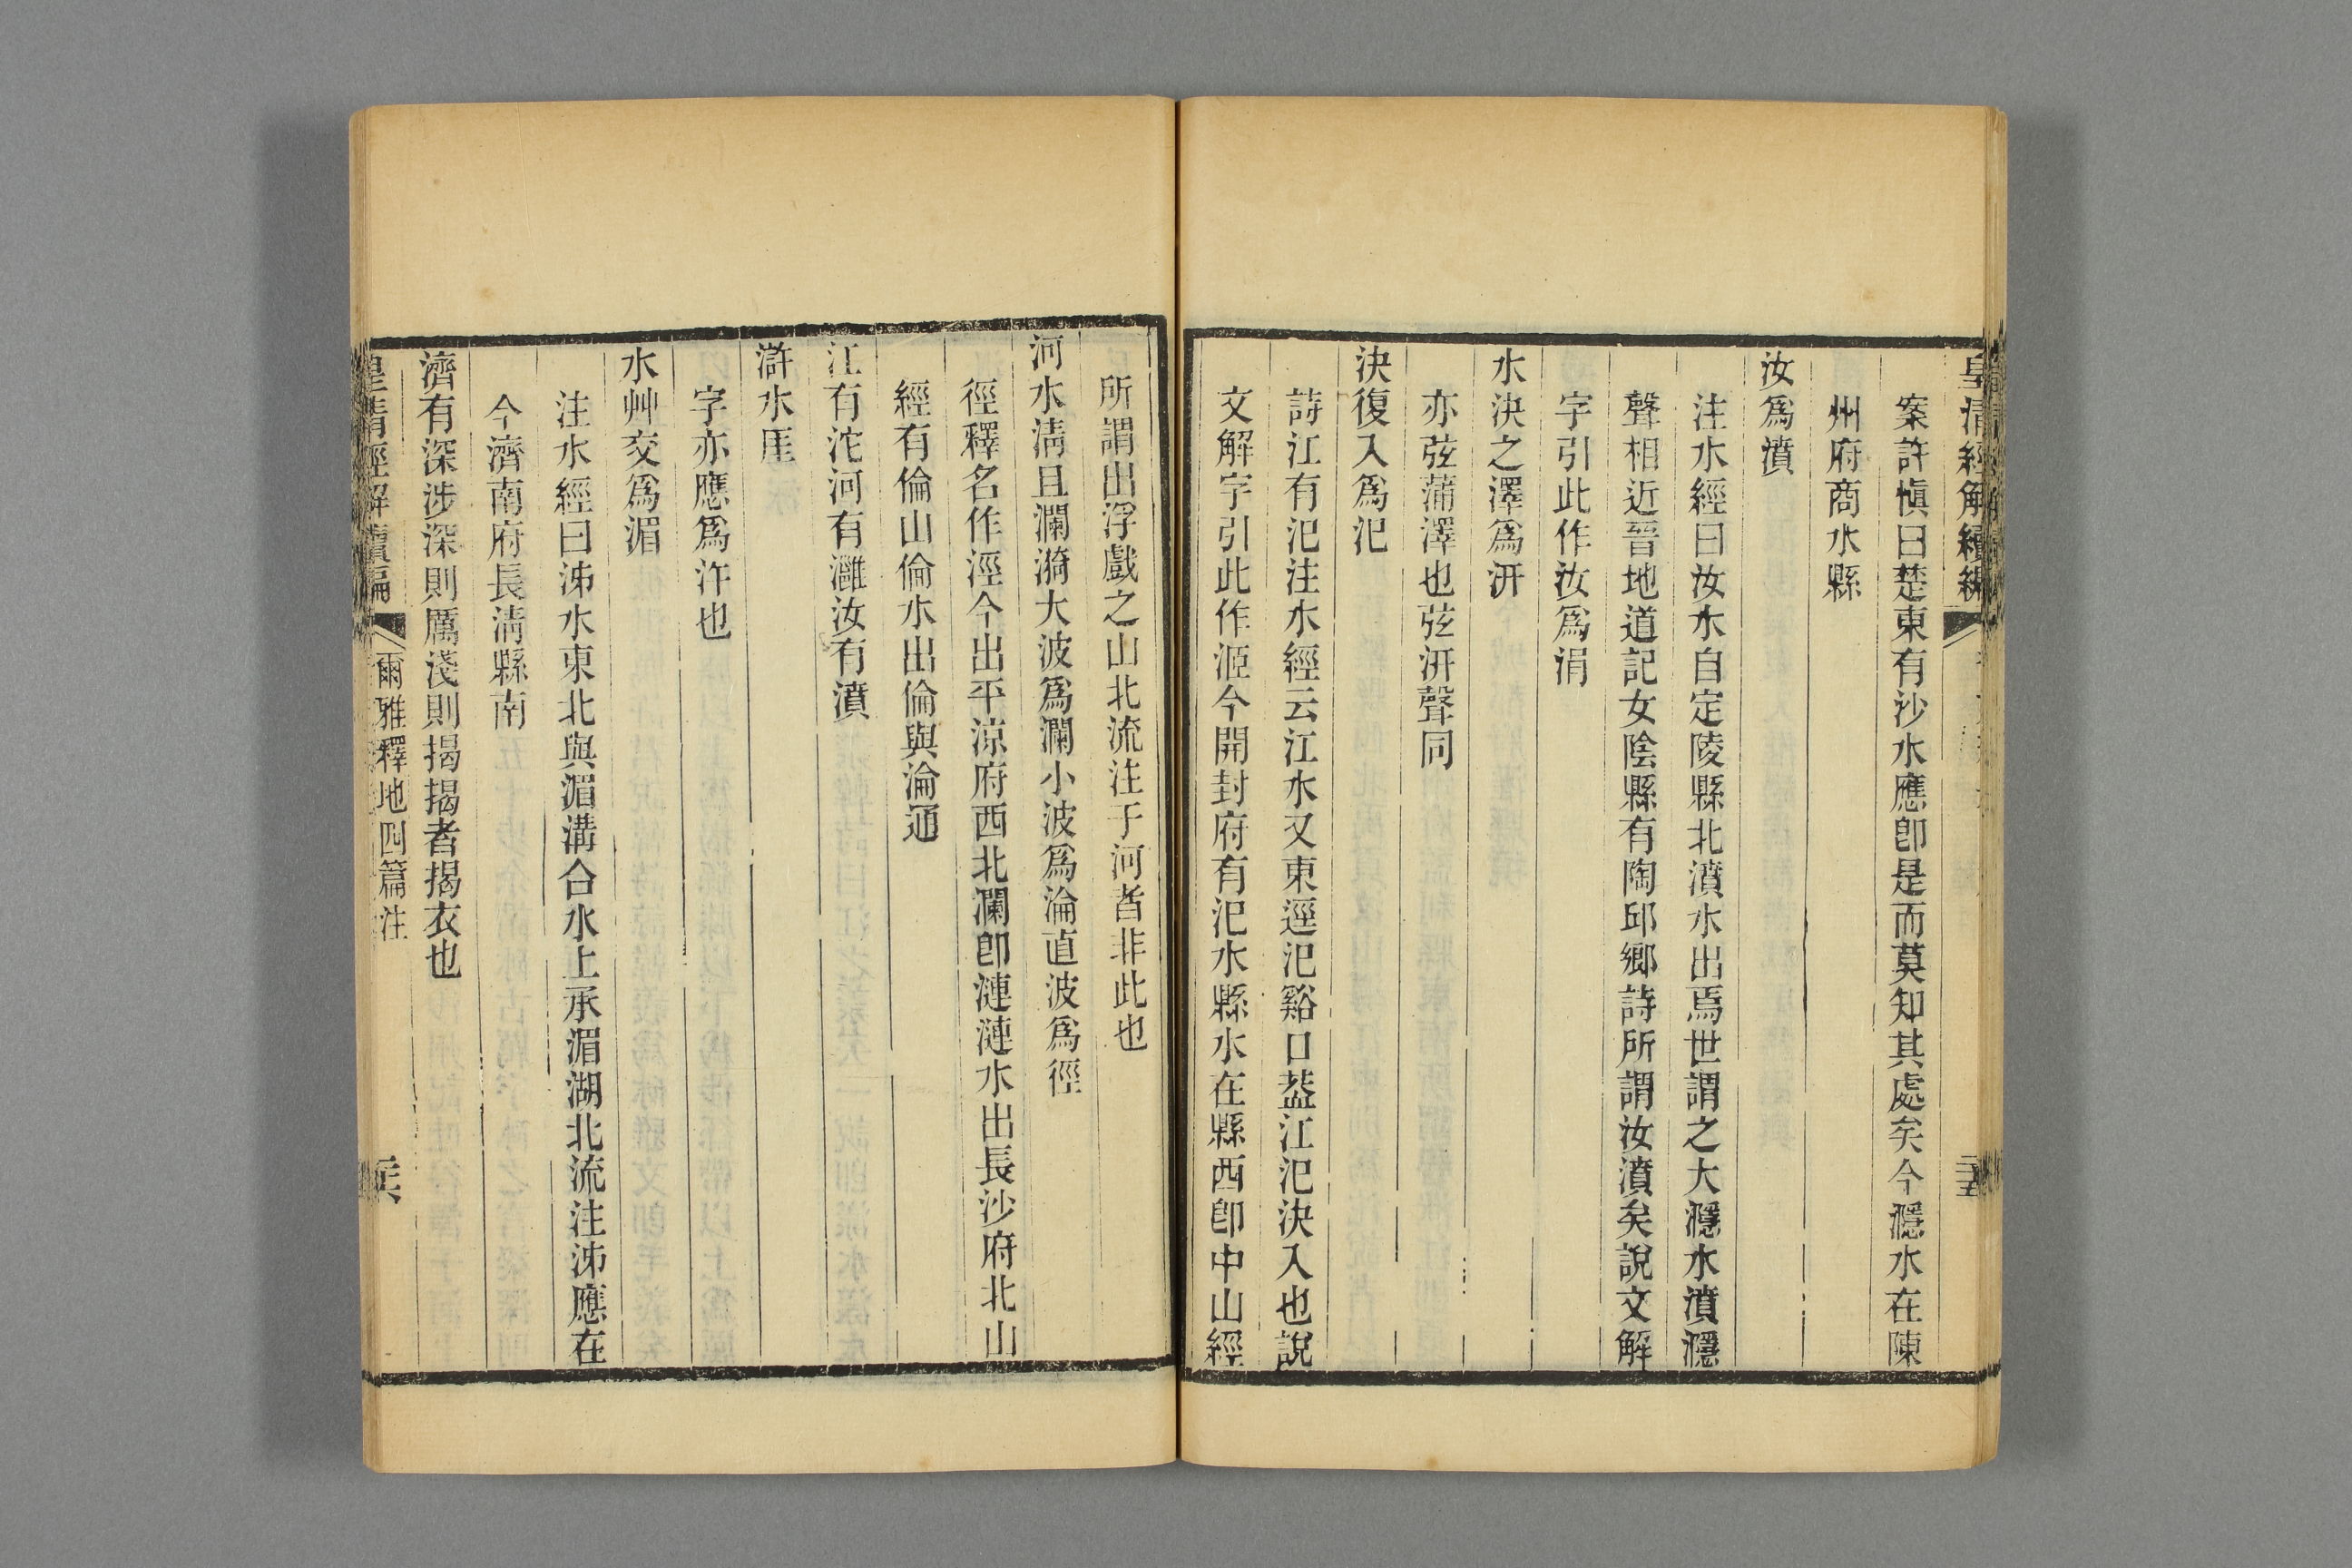 皇清經解續編
案許愼曰楚東有沙水應卽是而莫知其處矣今濦水在陳
州府商水縣
汝爲濆
注水經曰汝水自定陵縣北濆水出焉世謂之大濦水濆濦
聲相近晉地道記女陰縣有陶邱鄉詩所謂汝濆矣說文解
字引此作汝爲涓
水決之澤爲汧
亦弦蒲澤也弦汧聲同
決復入爲汜
詩江有汜注水經云江水又東逕汜谿口葢江汜決入也說
文解字引此作洍今開封府有汜水縣水在縣西卽中山經
所謂出浮戲之山北流注于河者非此也
河水淸且瀾漪大波爲瀾小波爲淪直波爲徑
徑釋名作涇今出平涼府西北瀾卽漣漣水出長沙府北山
經有倫山倫水出倫與淪通
江有沱河有灉汝有濆
滸水厓
字亦應爲汻也
水艸交爲湄
注水經曰泲水東北與湄溝合水上承湄湖北流注泲應在
今濟南府長淸縣南
濟有深涉深則厲淺則揭揭者揭衣也
皇清經解續編
爾雅釋地四篇注